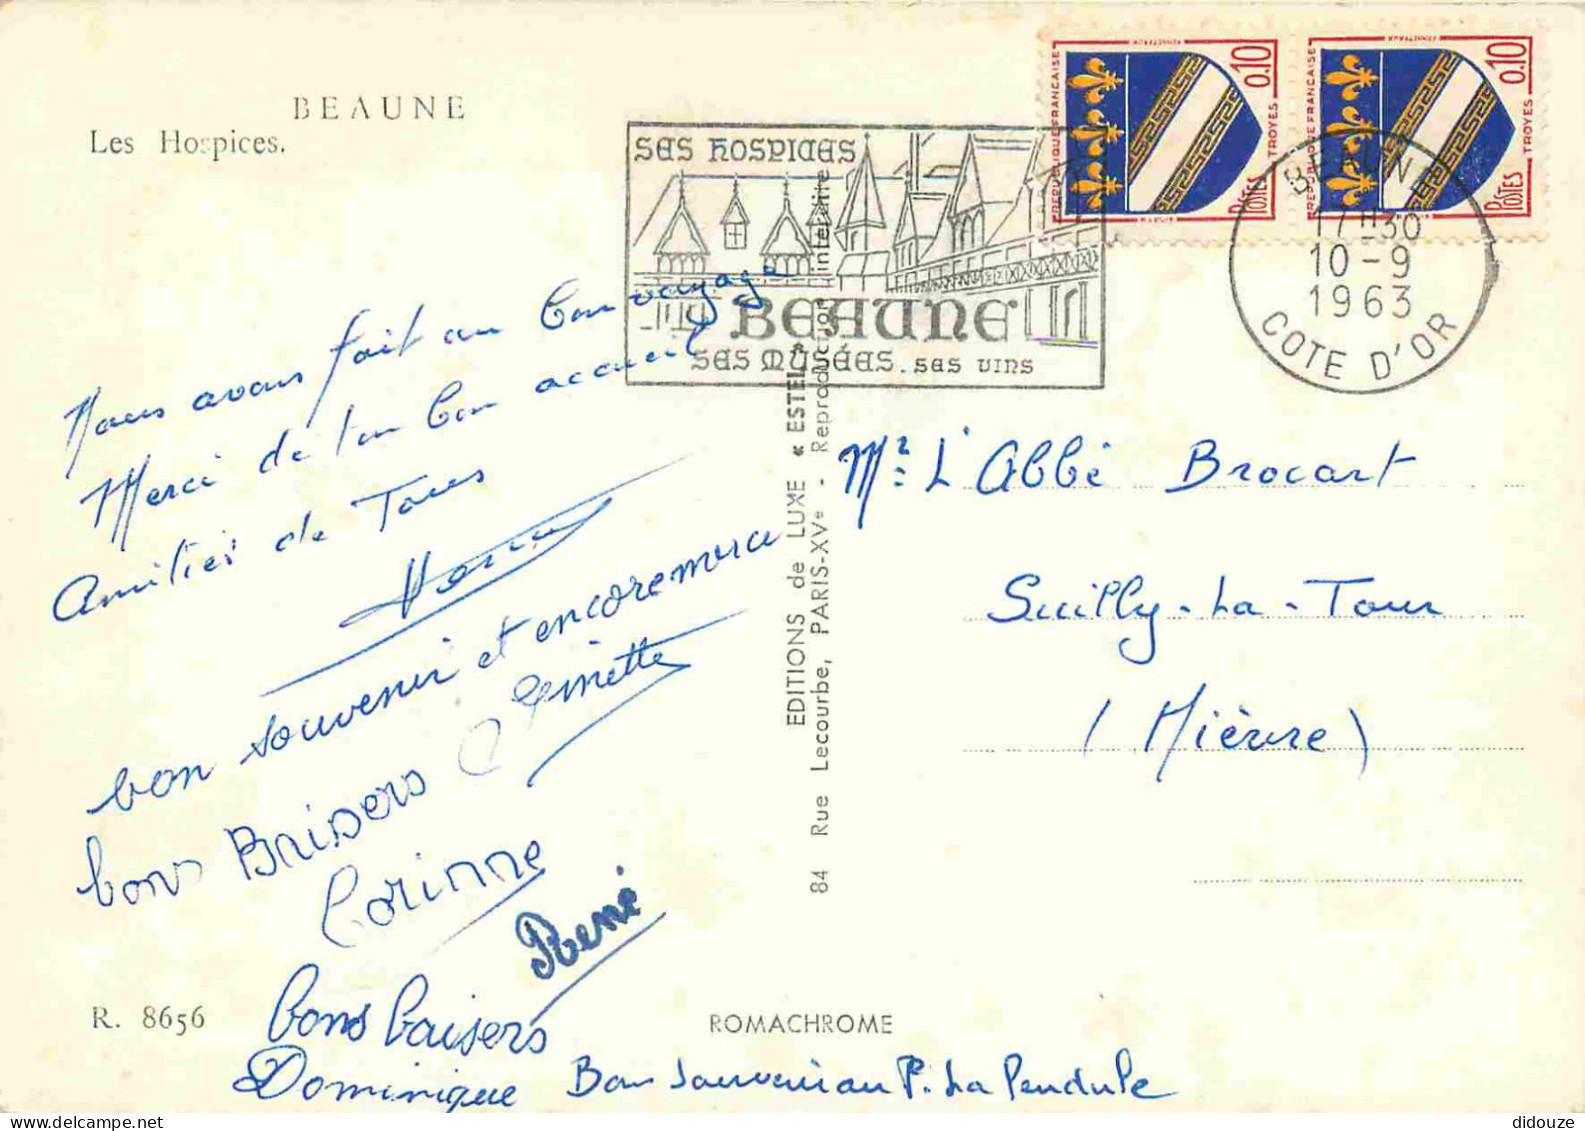 BEAUNE
Les Hospices.
SES HOSPICES
BEAUNE
SES MUSÉES. SES VINS
REPUBLIQUE FRANCAISE
0.10
TROYES
POSTES
REPUBLIQUE FRANCAISE
0.10
TROYES
POSTES
BEAUNE
17H30
10-9
1963
COTE D'OR
Nous avons fait un bon voyage
Merci de ton bon accueil
Amitiés de Tous
bon souvenir et encore merci
Ginette
bons Baisers
Corinne
René
bons baisers
Dominique
Bon souvenir au P. La Pendule
R. 8656
ROMACHROME
EDITIONS de LUXE « ESTEL »
84 Rue Lecourbe, PARIS-XVe - Reproduction interdite
Mr L'Abbé Brocart
Suilly-La-Tour
(Nièvre)
didouze